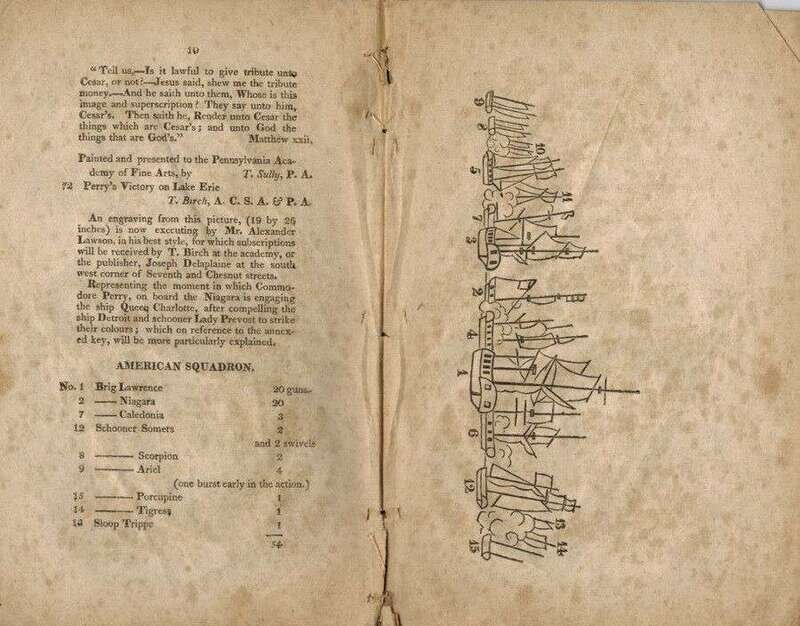 10
"Tell us,—Is it lawful to give tribute unto
Cesar, or not?—Jesus said, shew me the tribute
money.—And he saith unto them, Whose is this
image and superscription? They say unto him,
Cesar's. Then saith he, Render unto Cesar the
things which are Cesar's; and unto God the
things that are God's." Matthew xxii.
Painted and presented to the Pennsylvania Aca-
demy of Fine Arts, by T. Sully, P. A.
72 Perry's Victory on Lake Erie
T. Birch, A. C. S. A. & P. A.
An engraving from this picture, (19 by 26
inches) is now executing by Mr. Alexander
Lawson, in his best style, for which subscriptions
will be received by T. Birch at the academy, or
the publisher, Joseph Delaplaine at the south
west corner of Seventh and Chesnut streets.
Representing the moment in which Commo-
dore Perry, on board the Niagara is engaging
the ship Queen Charlotte, after compelling the
ship Detroit and schooner Lady Prevost to strike
their colours; which on reference to the annex-
ed key, will be more particularly explained.
AMERICAN SQUADRON.
No. 1 Brig Lawrence 20 guns.
2 —— Niagara 20
7 —— Caledonia 3
12 Schooner Somers 2
and 2 swivels
8 ——— Scorpion 2
9 ——— Ariel 4
(one burst early in the action.)
15 ——— Porcupine 1
14 ——— Tigress 1
13 Sloop Trippe 1
54
9
8
10
5
11
7
3
2
4
1
6
12
13
14
15